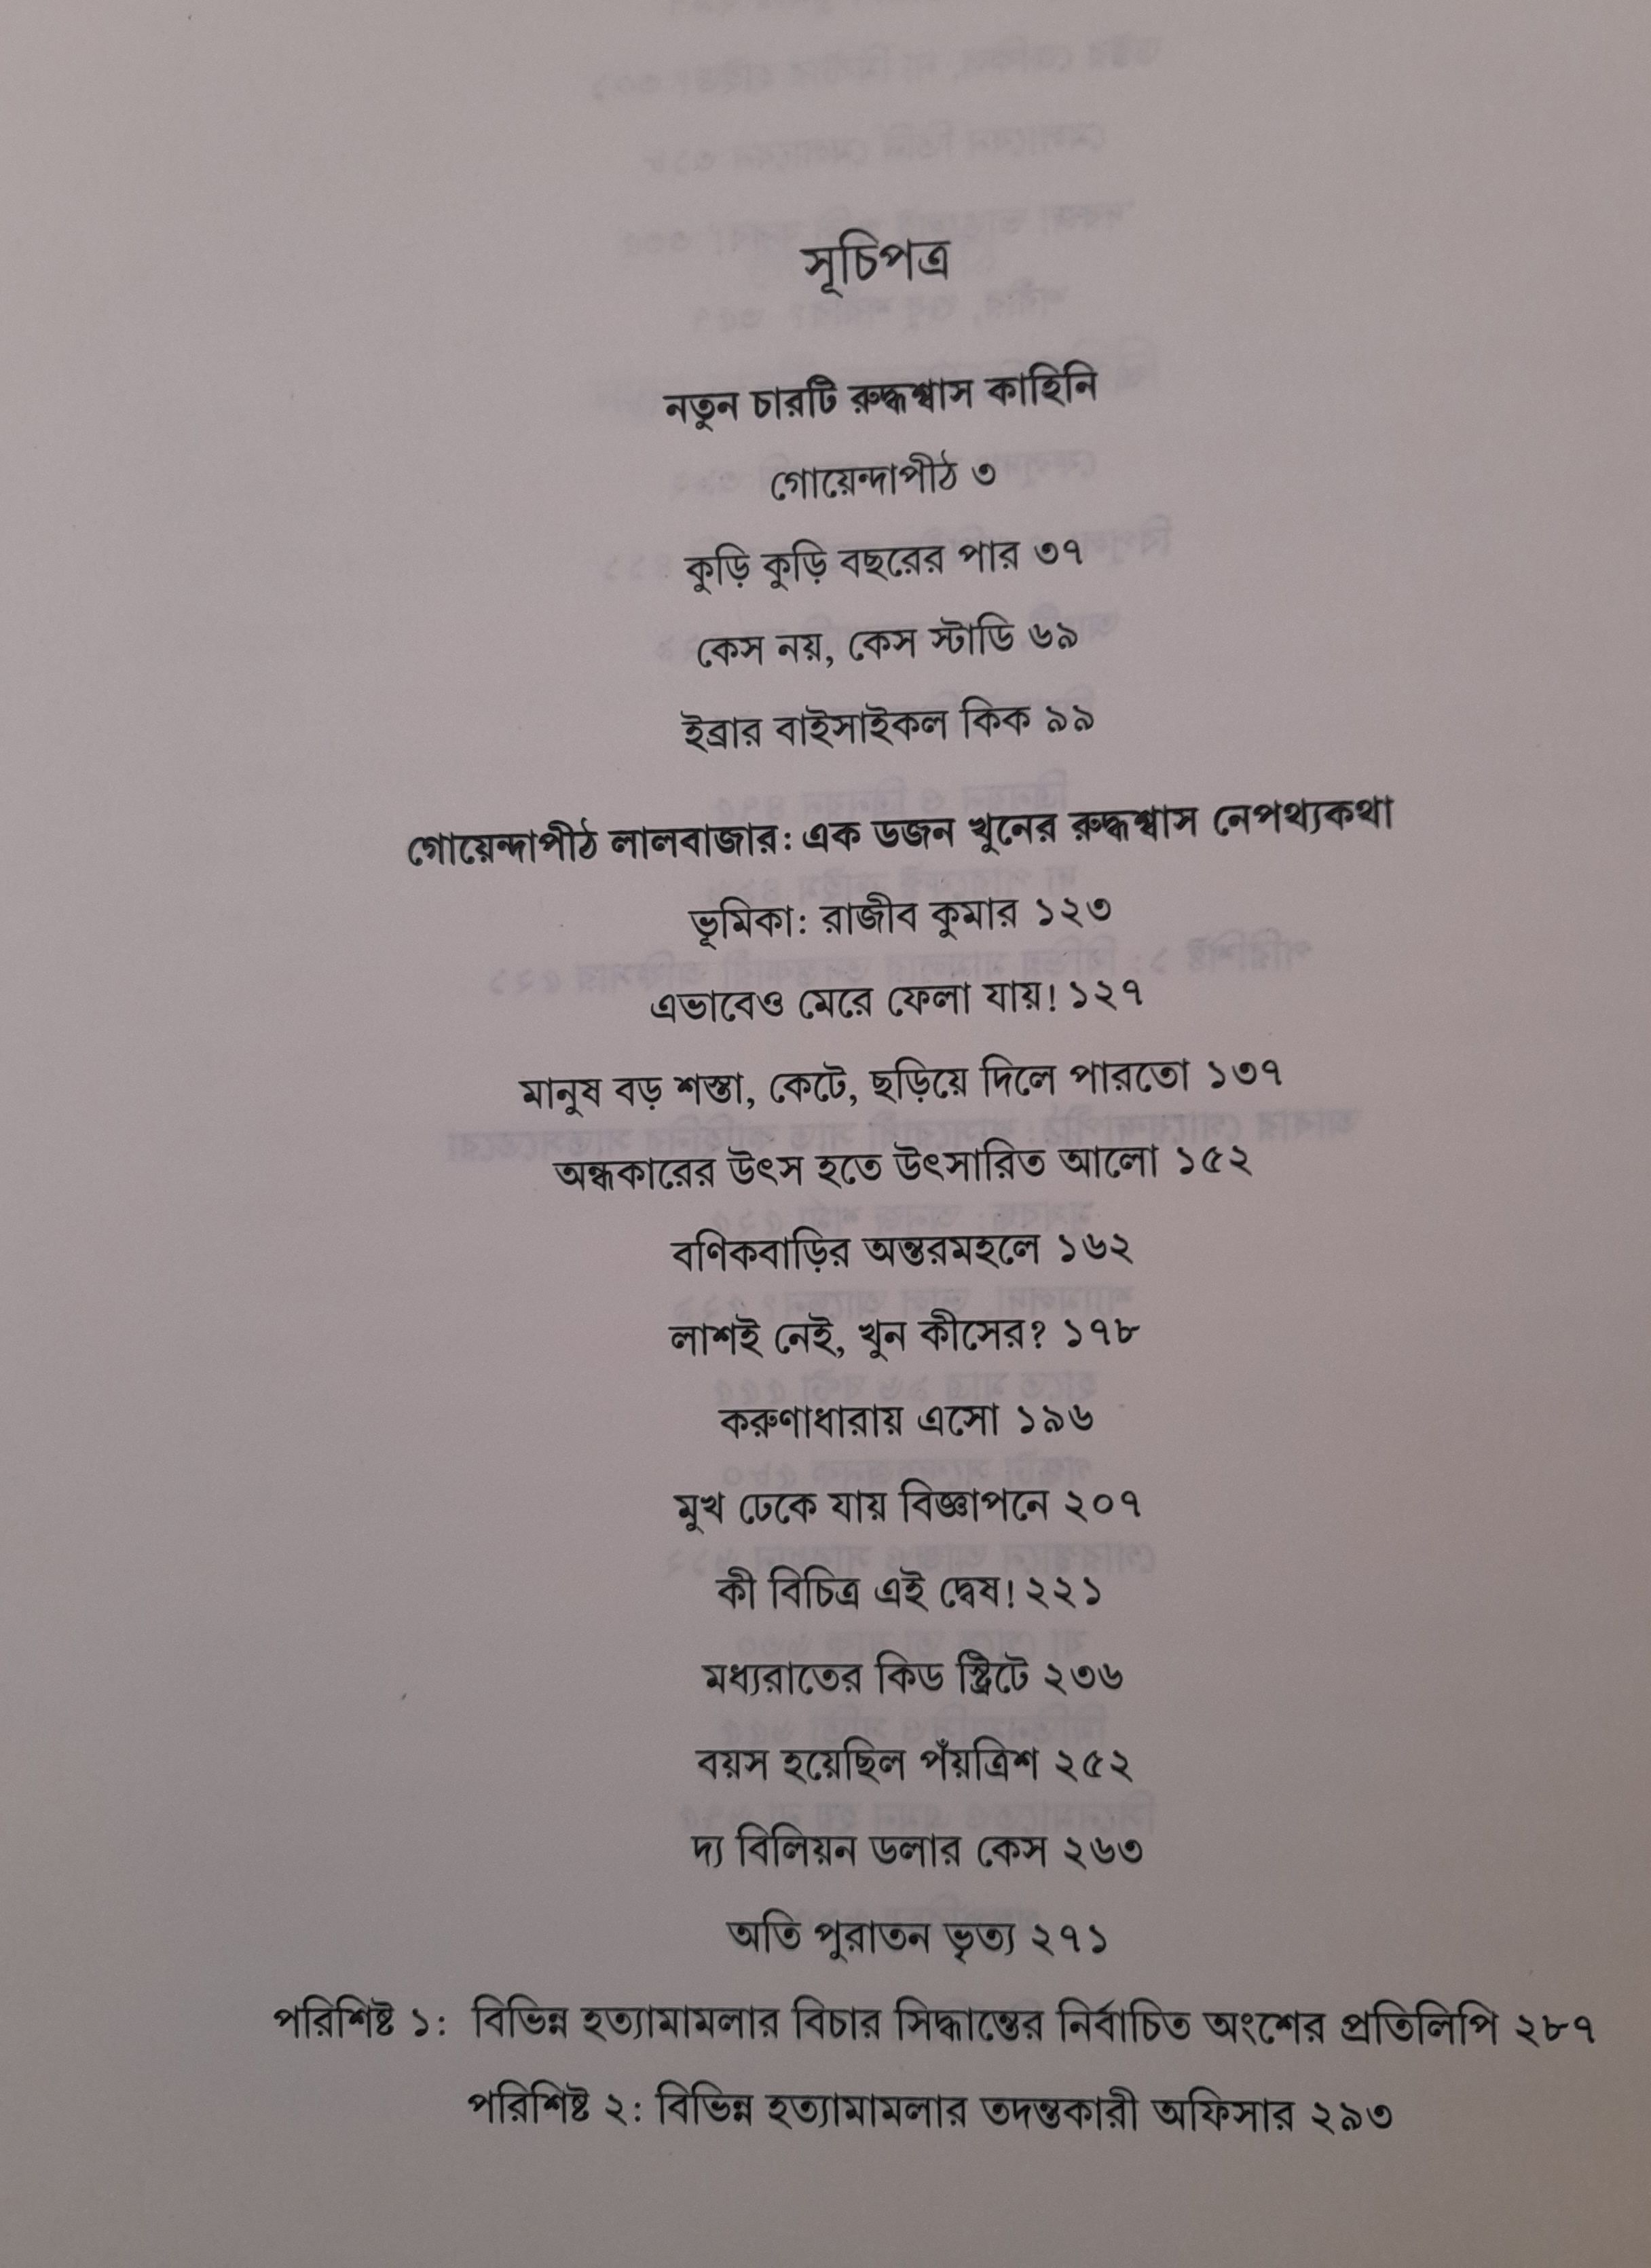 সূচিপত্র
নতুন চারটি রুদ্ধশ্বাস কাহিনি
গোয়েন্দাপীঠ ৩
কুড়ি কুড়ি বছরের পার ৩৭
কেস নয়, কেস স্টাডি ৬৯
ইব্রার বাইসাইকল কিক ৯৯
গোয়েন্দাপীঠ লালবাজার: এক ডজন খুনের রুদ্ধশ্বাস নেপথ্যকথা
ভূমিকা: রাজীব কুমার ১২৩
এভাবেও মেরে ফেলা যায়! ১২৭
মানুষ বড় শস্তা, কেটে, ছড়িয়ে দিলে পারতো ১৩৭
অন্ধকারের উৎস হতে উৎসারিত আলো ১৫২
বণিকবাড়ির অন্তরমহলে ১৬২
লাশই নেই, খুন কীসের? ১৭৮
করুণাধারায় এসো ১৯৬
মুখ ঢেকে যায় বিজ্ঞাপনে ২০৭
কী বিচিত্র এই দ্বেষ! ২২১
মধ্যরাতের কিড স্ট্রিটে ২৩৬
বয়স হয়েছিল পঁয়ত্রিশ ২৫২
দ্য বিলিয়ন ডলার কেস ২৬৩
অতি পুরাতন ভৃত্য ২৭১
পরিশিষ্ট ১: বিভিন্ন হত্যামামলার বিচার সিদ্ধান্তের নির্বাচিত অংশের প্রতিলিপি ২৮৭
পরিশিষ্ট ২: বিভিন্ন হত্যামামলার তদন্তকারী অফিসার ২৯৩